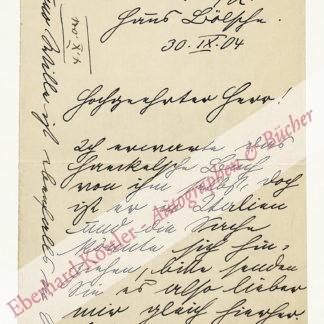 Haus Bölsche.
30. IX. 04
Hochgeehrter Herr!
Ich erwarte das
Haeckelsche Buch
von ihm selbst, doch
ist er in Italien
und die Sache
könnte sich hin-
ziehen, bitte senden
Sie es also lieber
mir gleich hierher.
Eberhard Köstler - Autographen & Bücher